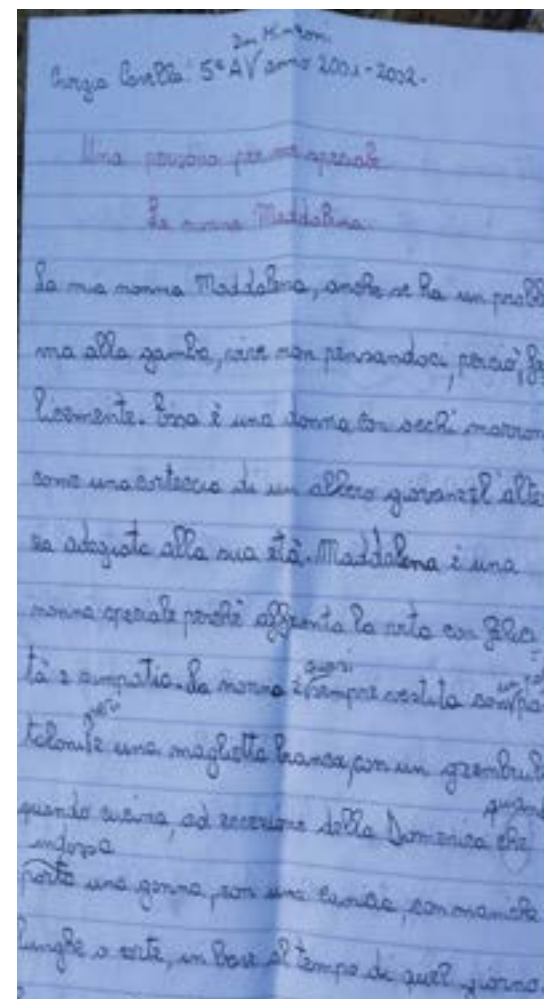 5ª A anno 2001-2002.
Una persona per me speciale
La nonna Maddalena.
La mia nonna Maddalena, anche se ha un proble
ma alla gamba, vive non pensandoci, perciò, fe
licemente. Essa è una donna con occhi marron
come una corteccia di un albero giovane, l'alte
za adeguata alla sua età. Maddalena è una
nonna speciale perché affronta la vita con felici
tà e simpatia. La nonna è quasi sempre vestita con un pa
talonite una maglietta bianca, con un grembiule
quando
quando cucina, ad eccezione della Domenica che
indossa
porta una gonna, con una camicia, con maniche
lunghe o corte, in base al tempo di quel giorno.